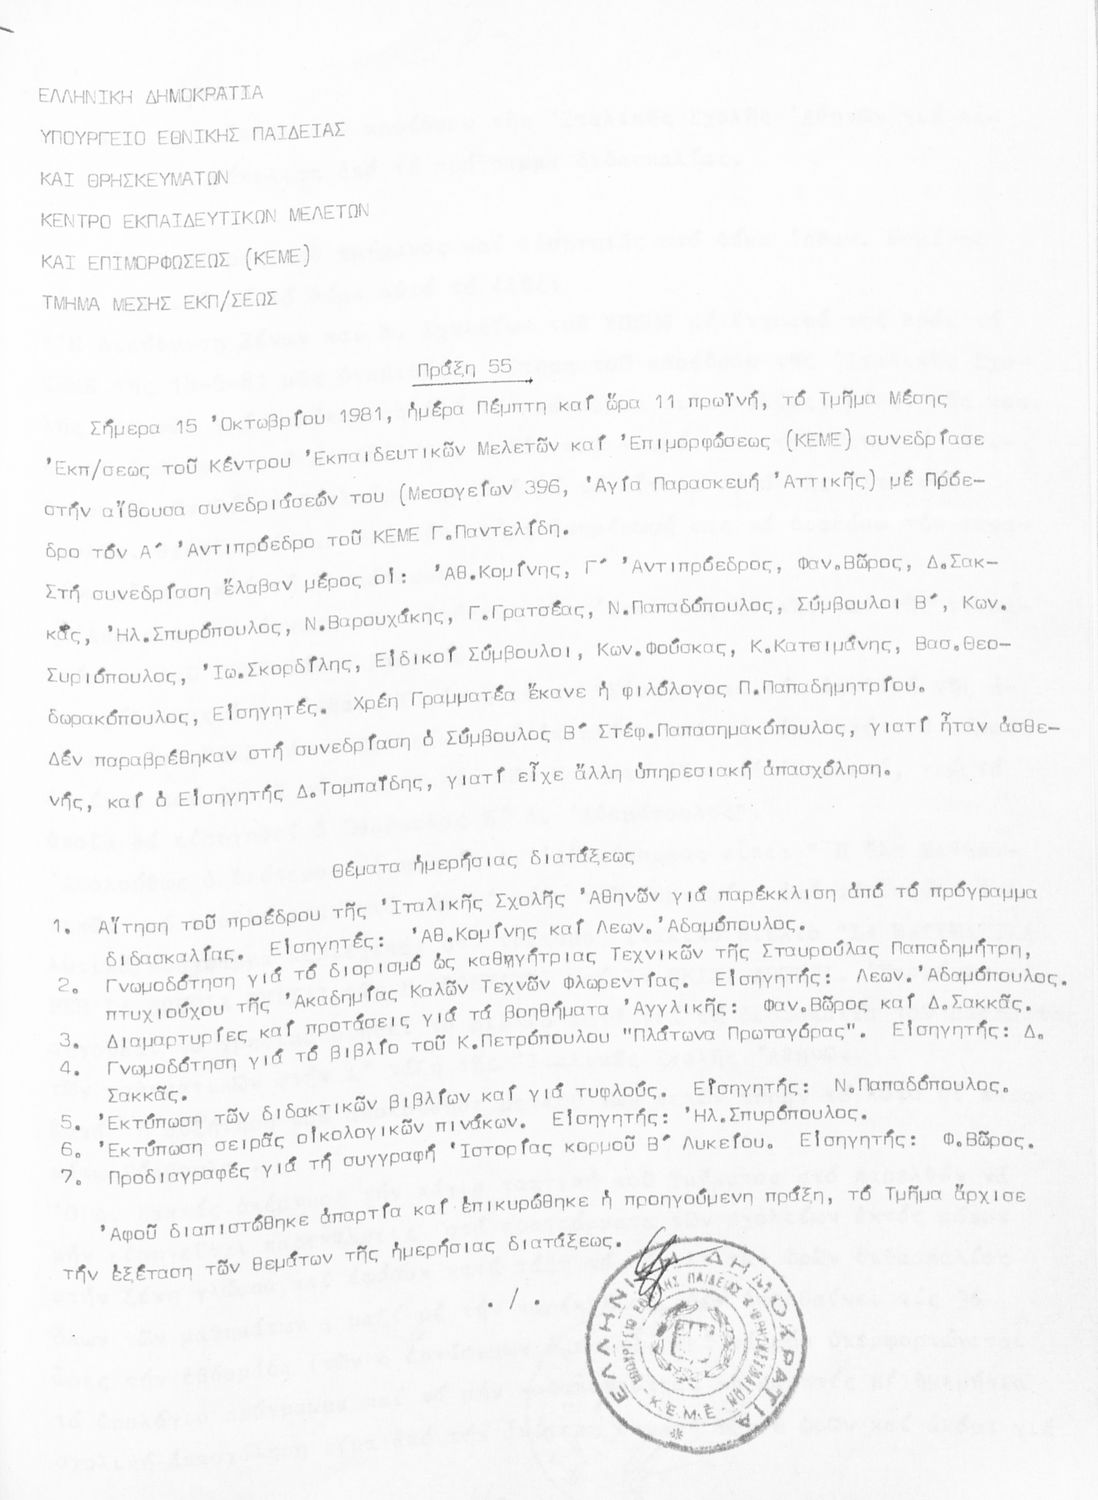 ΕΛΛΗΝΙΚΗ ΔΗΜΟΚΡΑΤΙΑ
ΥΠΟΥΡΓΕΙΟ ΕΘΝΙΚΗΣ ΠΑΙΔΕΙΑΣ
ΚΑΙ ΘΡΗΣΚΕΥΜΑΤΩΝ
ΚΕΝΤΡΟ ΕΚΠΑΙΔΕΥΤΙΚΩΝ ΜΕΛΕΤΩΝ
ΚΑΙ ΕΠΙΜΟΡΦΩΣΕΩΣ (ΚΕΜΕ)
ΤΜΗΜΑ ΜΕΣΗΣ ΕΚΠ/ΣΕΩΣ
Πράξη 55
Σήμερα 15 Ὀκτωβρίου 1981, ἡμέρα Πέμπτη καί ὥρα 11 πρωϊνή, τό Τμῆμα Μέσης
Ἐκπ/σεως τοῦ Κέντρου Ἐκπαιδευτικῶν Μελετῶν καί Ἐπιμορφώσεως (ΚΕΜΕ) συνεδρίασε
στήν αἴθουσα συνεδριάσεών του (Μεσογείων 396, Ἁγία Παρασκευή Ἀττικῆς) μέ Πρόε-
δρο τόν Α΄ Ἀντιπρόεδρο τοῦ ΚΕΜΕ Γ.Παντελίδη.
Στή συνεδρίαση ἔλαβαν μέρος οἱ: Ἀθ.Κομίνης, Γ΄ Ἀντιπρόεδρος, Φαν.Βῶρος, Δ.Σακ-
κᾶς, Ἠλ.Σπυρόπουλος, Ν.Βαρουχάκης, Γ.Γρατσέας, Ν.Παπαδόπουλος, Σύμβουλοι Β΄, Κων.
Συριόπουλος, Ἰω.Σκορδίλης, Εἰδικοί Σύμβουλοι, Κων.Φούσκας, Κ.Κατσιμάνης, Βασ.Θεο-
δωρακόπουλος, Εἰσηγητές. Χρέη Γραμματέα ἔκανε ἡ φιλόλογος Π.Παπαδημητρίου.
Δέν παραβρέθηκαν στή συνεδρίαση ὁ Σύμβουλος Β΄ Στέφ.Παπασημακόπουλος, γιατί ἦταν ἀσθε-
νής, καί ὁ Εἰσηγητής Δ.Τομπαΐδης, γιατί εἶχε ἄλλη ὑπηρεσιακή ἀπασχόληση.
Θέματα ἡμερήσιας διατάξεως
1. Αἴτηση τοῦ προέδρου τῆς Ἰταλικῆς Σχολῆς Ἀθηνῶν γιά παρέκκλιση ἀπό τό πρόγραμμα
διδασκαλίας. Εἰσηγητές: Ἀθ.Κομίνης καί Λεων.Ἀδαμόπουλος.
2. Γνωμοδότηση γιά τό διορισμό ὡς καθηγήτριας Τεχνικῶν τῆς Σταυρούλας Παπαδημήτρη,
πτυχιούχου τῆς Ἀκαδημίας Καλῶν Τεχνῶν Φλωρεντίας. Εἰσηγητής: Λεων.Ἀδαμόπουλος.
3. Διαμαρτυρίες καί προτάσεις γιά τά βοηθήματα Ἀγγλικῆς: Φαν.Βῶρος καί Δ.Σακκᾶς.
4. Γνωμοδότηση γιά τό βιβλίο τοῦ Κ.Πετρόπουλου "Πλάτωνα Πρωταγόρας". Εἰσηγητής: Δ.
Σακκᾶς.
5. Ἐκτύπωση τῶν διδακτικῶν βιβλίων καί γιά τυφλούς. Εἰσηγητής: Ν.Παπαδόπουλος.
6. Ἐκτύπωση σειρᾶς οἰκολογικῶν πινάκων. Εἰσηγητής: Ἠλ.Σπυρόπουλος.
7. Προδιαγραφές γιά τή συγγραφή Ἱστορίας κορμοῦ Β΄ Λυκείου. Εἰσηγητής: Φ.Βῶρος.
Ἀφοῦ διαπιστώθηκε ἀπαρτία καί ἐπικυρώθηκε ἡ προηγούμενη πράξη, τό Τμῆμα ἄρχισε
τήν ἐξέταση τῶν θεμάτων τῆς ἡμερήσιας διατάξεως.
. / .
ΕΛΛΗΝΙΚΗ ΔΗΜΟΚΡΑΤΙΑ
ΥΠΟΥΡΓΕΙΟ ΕΘΝΙΚΗΣ ΠΑΙΔΕΙΑΣ & ΘΡΗΣΚΕΥΜΑΤΩΝ
- Κ.Ε.Μ.Ε -